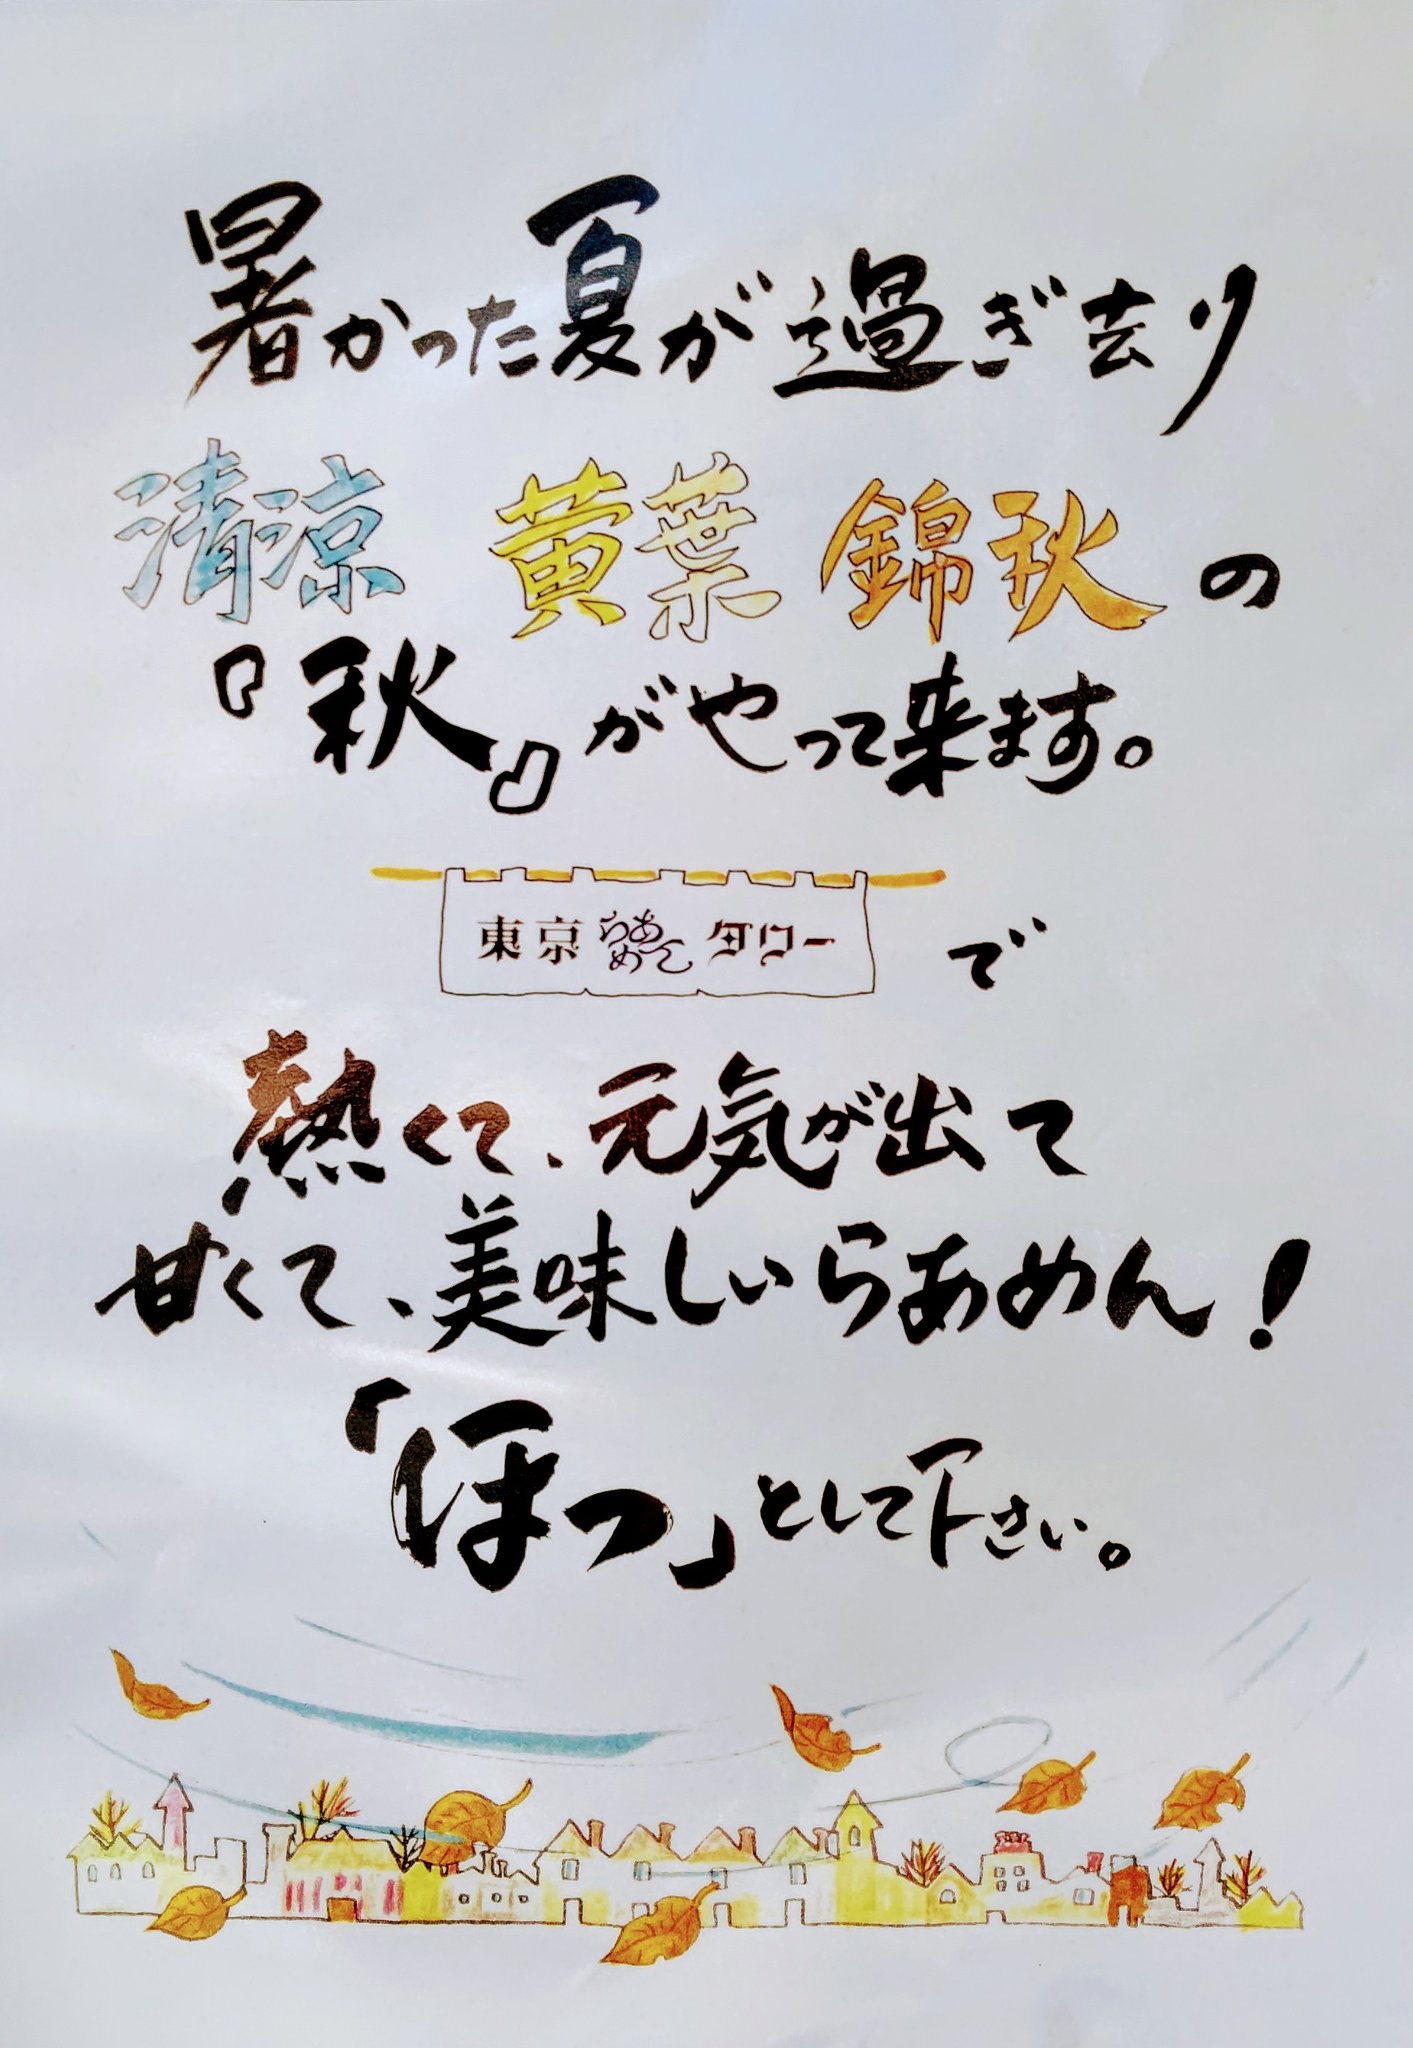 暑かった夏が過ぎ去り
清涼 黄葉 錦秋の
『秋』がやって来ます。
東京らあめんタワーで
熱くて、元気が出て
甘くて、美味しいらあめん!
「ほっ」として下さい。